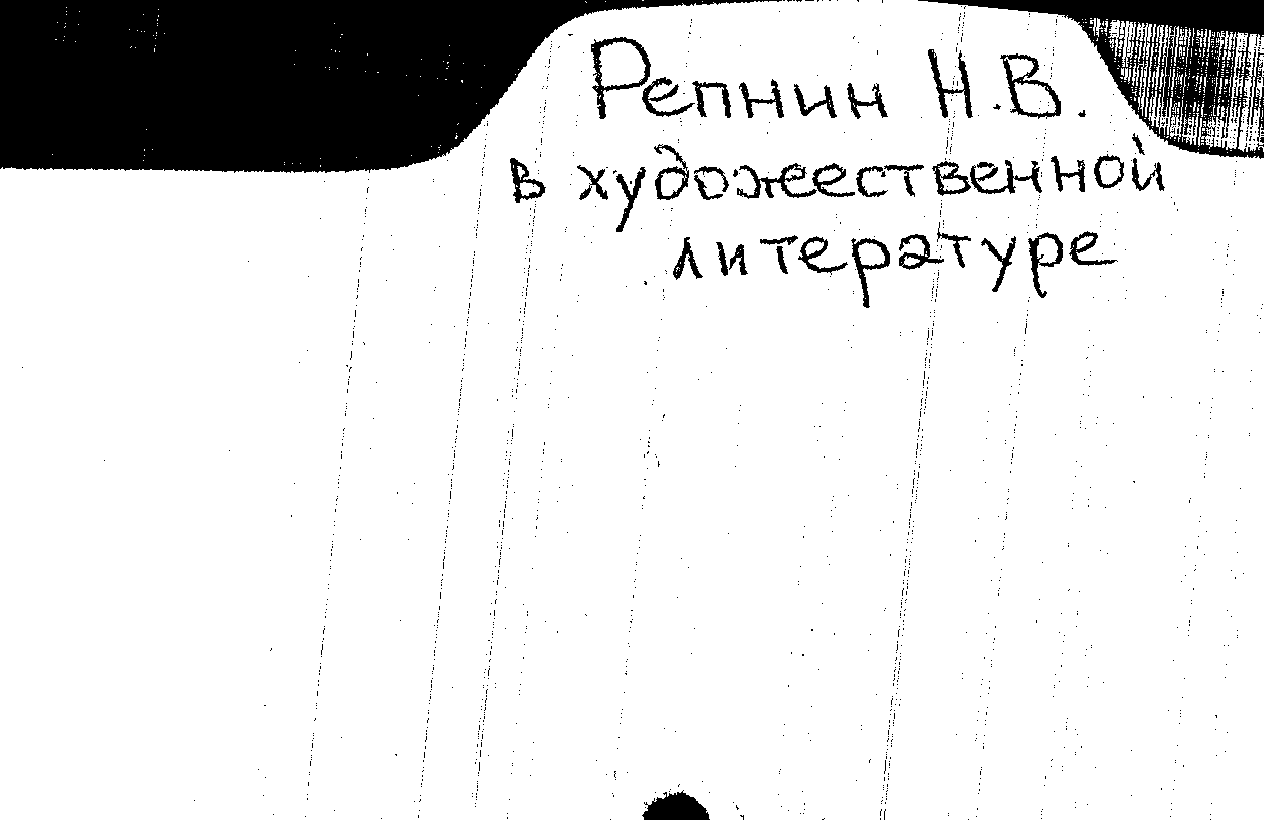 Репнин Н.В.
в художественной
литературе